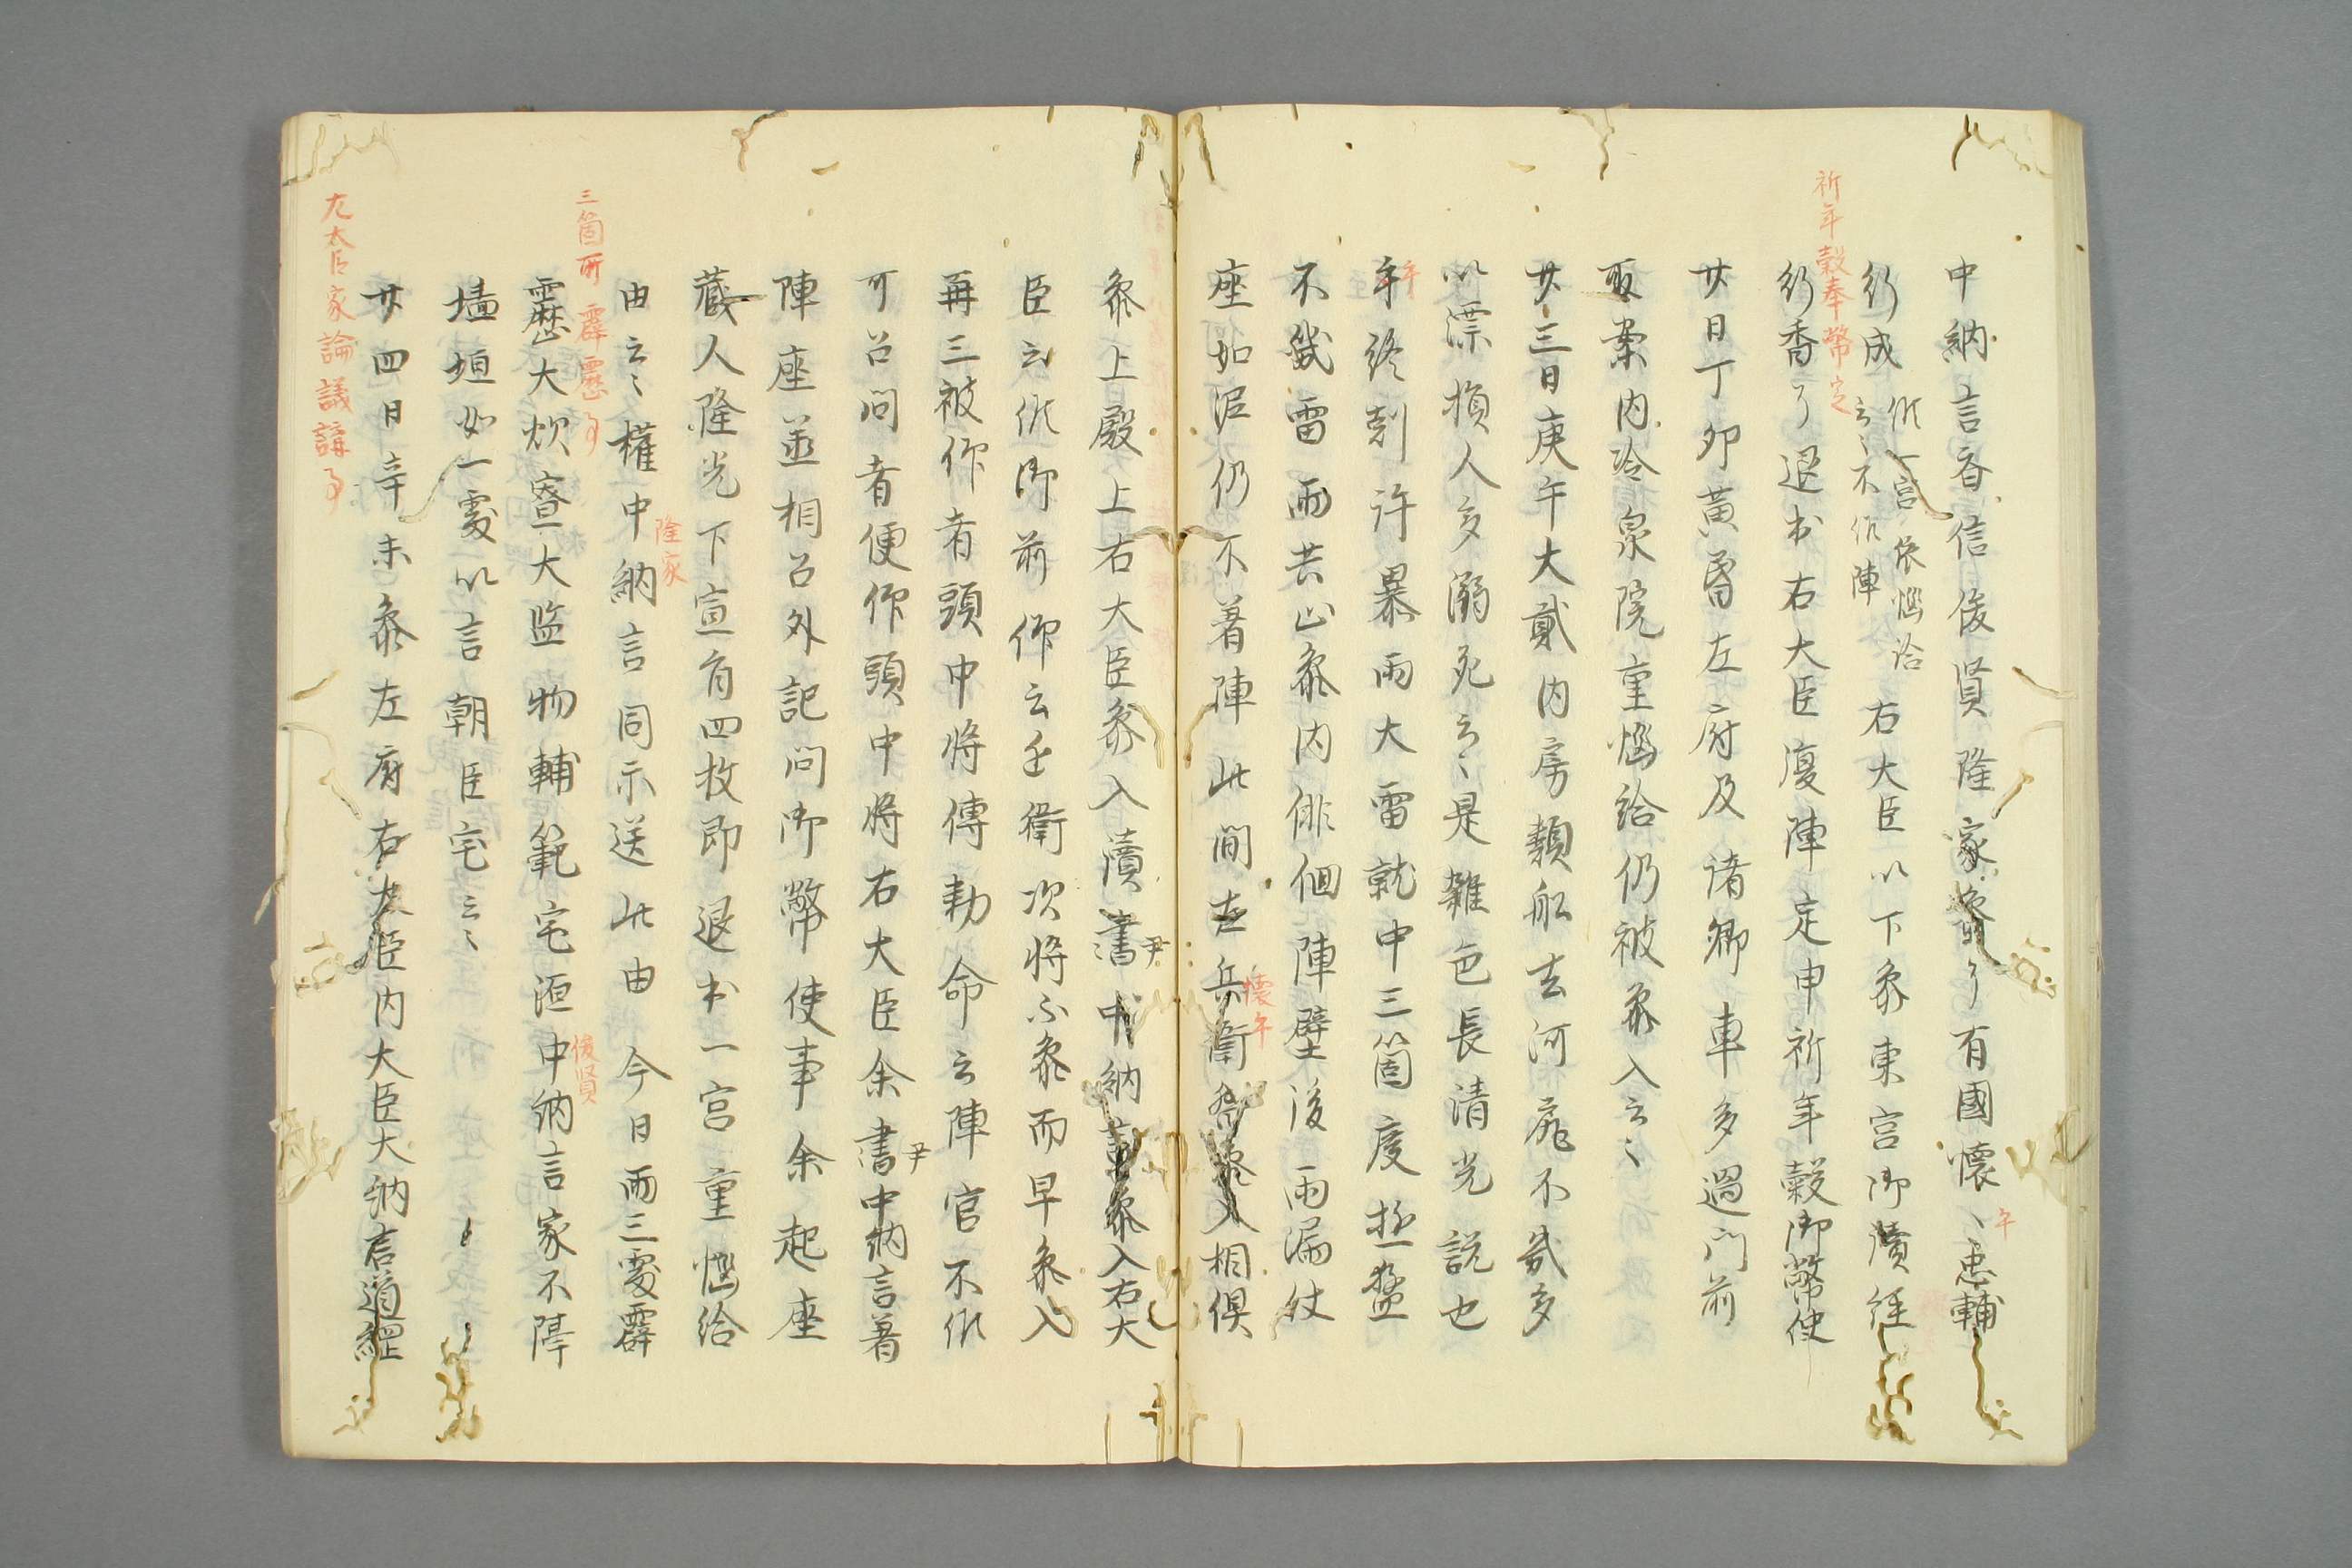 中納言斉信俊賢隆家参了有國懐、忠輔
平
行成 候一宮依悩給
云々不候陣 右大臣以下参東宮御讀経
祈年穀奉幣定
行香了退出右大臣復陣定申祈年穀御幣使
廿日丁卯黄昏左府及諸卿車多過門前
取案内冷泉院重悩給仍被参入云々
廿三日庚午大貳内房類船去河尻不幾多
以漂損人多溺死云々是雑色長清光説也
午
年終剋許暴雨大雷就中三箇度揺盤
不幾雷雨共止参内徘徊陣壁後雨漏仗
座如泥仍不着陣此間左兵衛督参入相俱
懐平
参上殿上右大臣参入讀書中納言参入右大
尹
臣云候御前仰云近衛次将不参而早参入
再三被仰者頭中将傳勅命云陣官不候
可召問者便仰頭中将右大臣余書中納言着
尹
陣座並相召外記問御幣使事余起座
蔵人隆光下宣旨四枚即退出一宮重悩給
由云々権中納言同示送此由今日雨三處霹
隆家
三箇所霹靂事
靂大炊寮大監物輔範宅洹中納言家不降
俊賢
墻垣如一處以言朝臣宅云々
廿四日辛未参左府右大臣内大臣大納言道綱
左大臣家論議講事